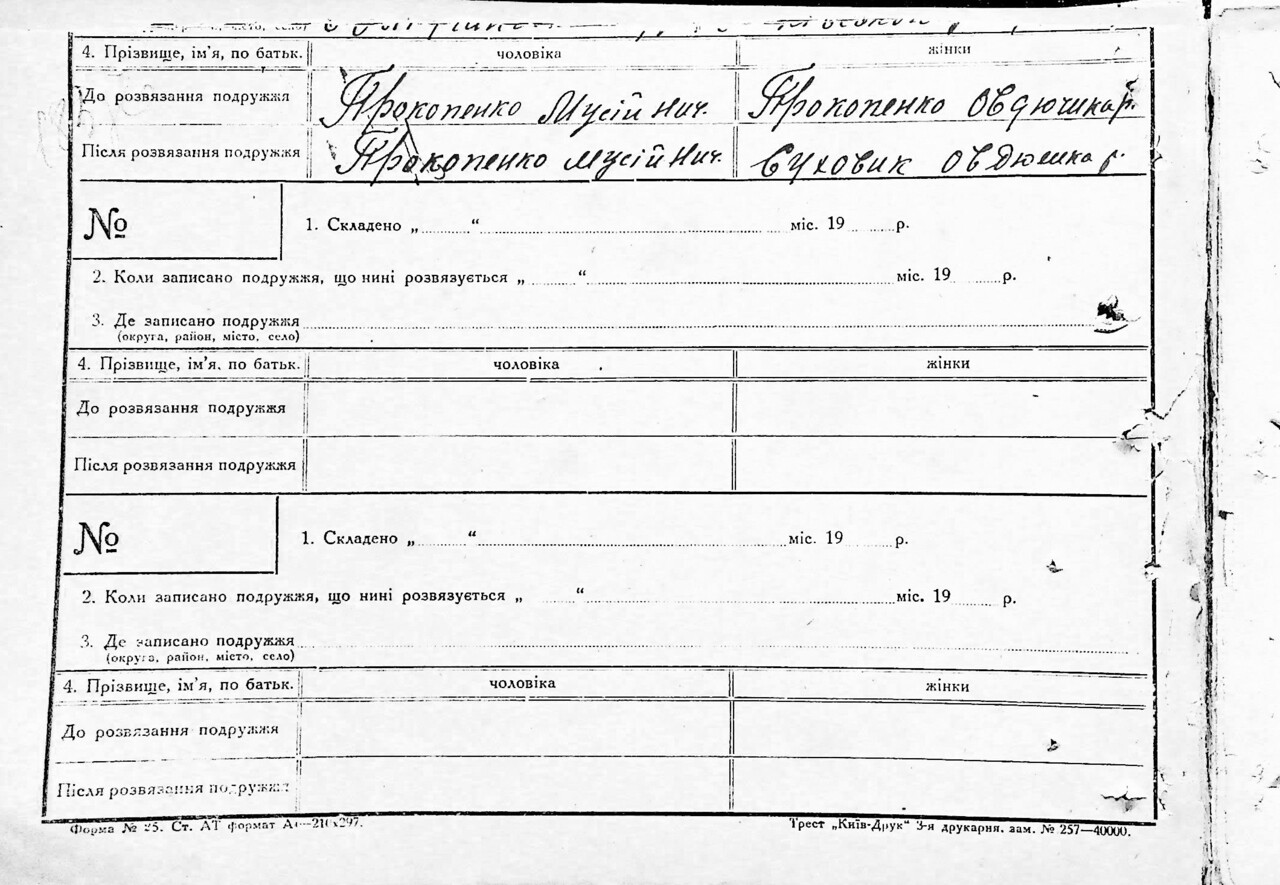 4. Прізвище, ім'я, по батьк. чоловіка жінки
До розвязання подружжя Прокопенко Мусій Нич. Прокопенко Овдюшка р.
Після розвязання подружжя Прокопенко Мусій Нич. Суховик Овдюшка р.
№
1. Складено „ “ міс. 19 р.
2. Коли записано подружжя, що нині розвязується „ “ міс. 19 р.
3. Де записано подружжя
(округа, район, місто, село)
4. Прізвище, ім'я, по батьк. чоловіка жінки
До розвязання подружжя
Після розвязання подружжя
№
1. Складено „ “ міс. 19 р.
2. Коли записано подружжя, що нині розвязується „ “ міс. 19 р.
3. Де записано подружжя
(округа, район, місто, село)
4. Прізвище, ім'я, по батьк. чоловіка жінки
До розвязання подружжя
Після розвязання подружжя
Форма № 25. Ст. АТ формат А4—210х297. Трест „Київ-Друк“ 3-я друкарня, зам. № 257—40000.